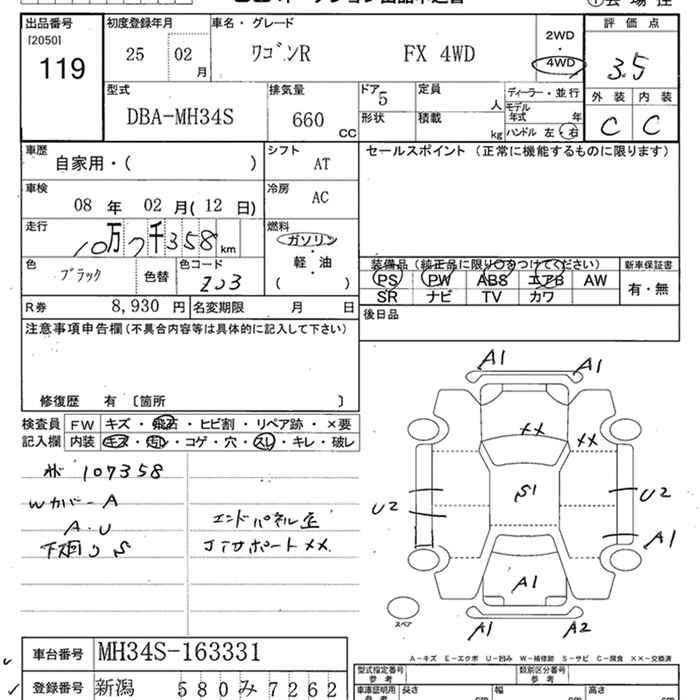 出品番号 初度登録年月 車名・グレード 評価点
[2050]
119 25 02 月 ワゴンR FX 4WD 2WD・4WD 3.5
型式 排気量 ドア 定員 ディーラー・並行 外装 内装
DBA-MH34S 660 CC 5 人 モデル年式 年 C C
形状 積載 kg ハンドル 左・右
車歴 シフト セールスポイント (正常に機能するものに限ります)
自家用・( ) AT
車検 冷房
08 年 02 月(12 日) AC
走行 燃料
10万7千358 km ガソリン
軽・油
( )
色 色コード 装備品 (純正品に限り○をつけてください) 新車保証書
ブラック 色替 Z03 PS PW ABS エアB AW 有・無
SR ナビ TV カワ
R券 8,930 円 名変期限 月 日 後日品
注意事項申告欄(不具合内容等は具体的に記入して下さい)
修復歴 有 〔箇所 〕
検査員 FW キズ・飛石・ヒビ割・リペア跡・×要
記入欄 内装 キズ・汚れ・コゲ・穴・スレ・キレ・破レ
107358
Wカバー A
A・U
下廻りS
エンドパネル歪
コアサポートXX
A1 A1
XX XX
S1
U2 U2
A1
A1
スペア
A1 A2
A-キズ E-エクボ U-凹み W-補修跡 S-サビ C-腐食 ××-交換済
車台番号 MH34S-163331 型式指定番号 参考 類別区分番号 参考
登録番号 新潟 580み7262 車庫証明用 長さ cm 幅 cm 高さ cm